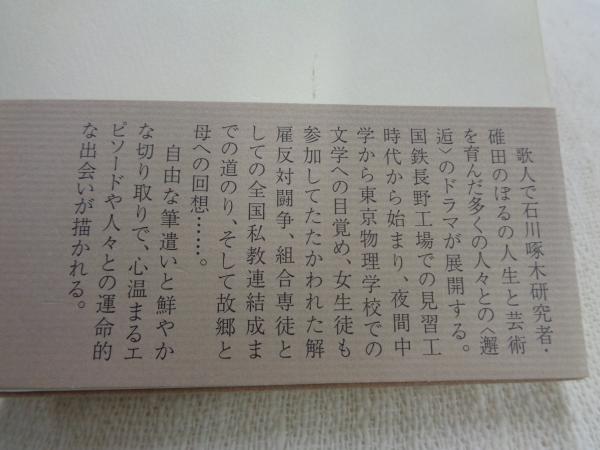 歌人で石川啄木研究者・
碓田のぼるの人生と芸術
を育んだ多くの人々との〈邂
逅〉のドラマが展開する。
国鉄長野工場での見習工
時代から始まり、夜間中
学から東京物理学校での
文学への目覚め、女生徒も
参加してたたかわれた解
雇反対闘争、組合専従と
しての全国私教連結成ま
での道のり、そして故郷と
母への回想……。
自由な筆遣いと鮮やか
な切り取りで、心温まるエ
ピソードや人々との運命的
な出会いが描かれる。